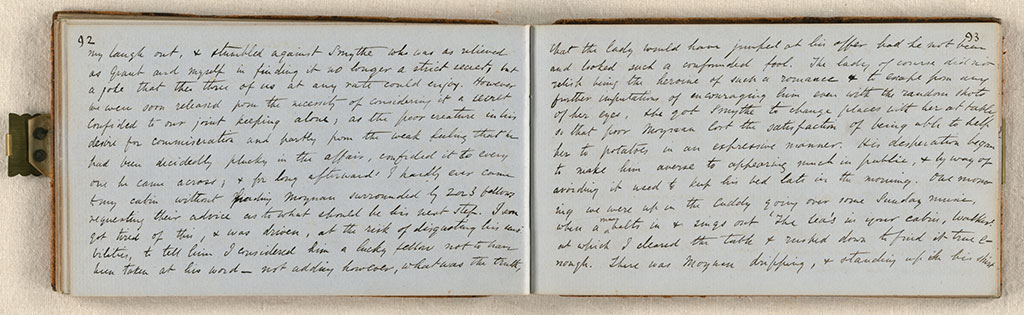 92
my laugh out, & stumbled against Smythe who was as relieved
as Grant and myself in finding it no longer a strict secret, but
a joke that the three of us at any rate could enjoy. However
we were soon released from the necessity of considering it a secret
confided to our joint keeping alone; as the poor creature in his
desire for commiseration and partly from the weak feeling that he
had been decidedly plucky in the affair, confided it to every
one he came across; & for long afterward I hardly ever came
to my cabin without finding Moynan surrounded by 2 or 3 fellows
requesting their advice as to what should be his next step. I soon
got tired of this, & was driven, at the risk of disgusting his sensi-
bilities, to tell him I considered him a lucky fellow not to have
been taken at his word – not adding however, what was the truth,
93
that the lady would have jumped at his offer had he not been
and looked such a confounded fool. The lady of course did not
relish being the heroine of such a romance & to escape from any
further imputations of encouraging him even with the random shots
of her eyes, she got Smythe to change places with her at table
so that poor Moynan lost the satisfaction of being able to help
her to potatoes in an expressive manner. His desperation began
to make him averse to appearing much in public, & by way of
avoiding it used to keep his bed late in the morning. One morn
ing we were up in the Cuddy going over some Sunday music,
when a man bolts in & sings out "The sea's in your cabin,
at which I cleared the table & rushed down to find it true e-
nough. There was Moynan dripping, & standing up in his shirt